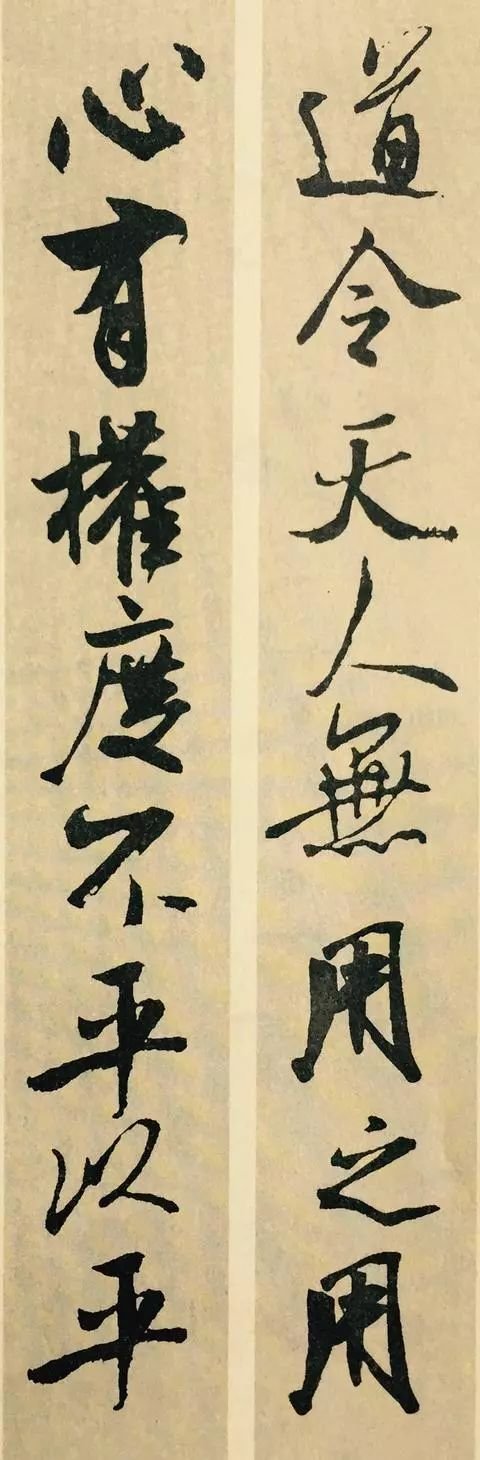 道令天人無用之用
心有權度不平以平